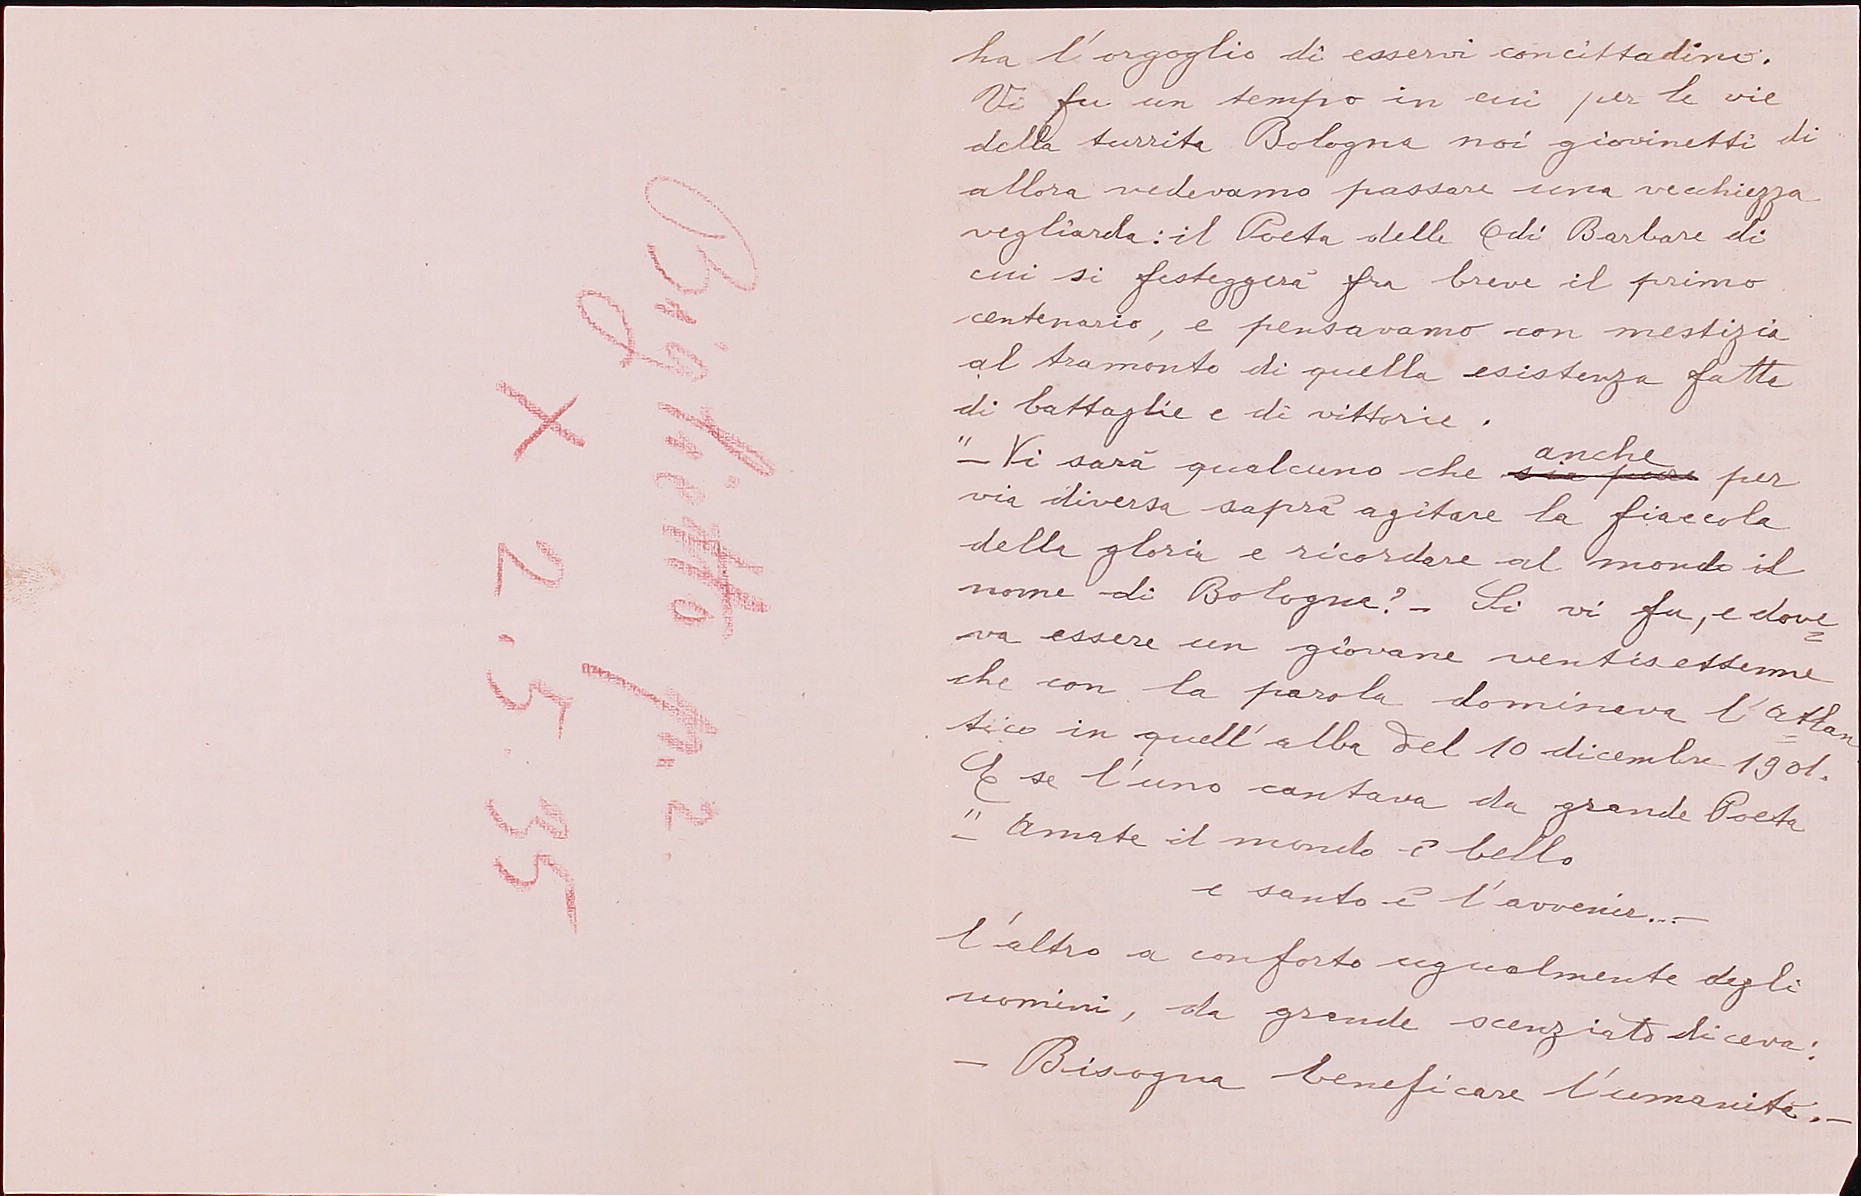 Biglietto fu. 2.
X 2. 5. 35
ha l'orgoglio di esservi concittadino.
Vi fu un tempo in cui per le vie
della turrita Bologna noi giovinetti di
allora vedevamo passare una vecchiezza
vegliarda: il Poeta delle Odi Barbare di
cui si festeggerà fra breve il primo
centenario, e pensavamo con mestizia
al tramonto di quella esistenza fatta
di battaglie e di vittorie.
"– Vi sarà qualcuno che sia pure anche per
via diversa saprà agitare la fiaccola
della gloria e ricordare al mondo il
nome di Bologna? – Si vi fu, e dove=
va essere un giovane ventisettenne
che con la parola dominava l'Atlan
tico in quell'alba del 10 dicembre 1901.
E se l'uno cantava da grande Poeta
"– Amate il mondo è bello
e santo è l'avvenir... –
l'altro a conforto ugualmente degli
uomini, da grande scenziato diceva:
– Bisogna beneficare l'umanità. –